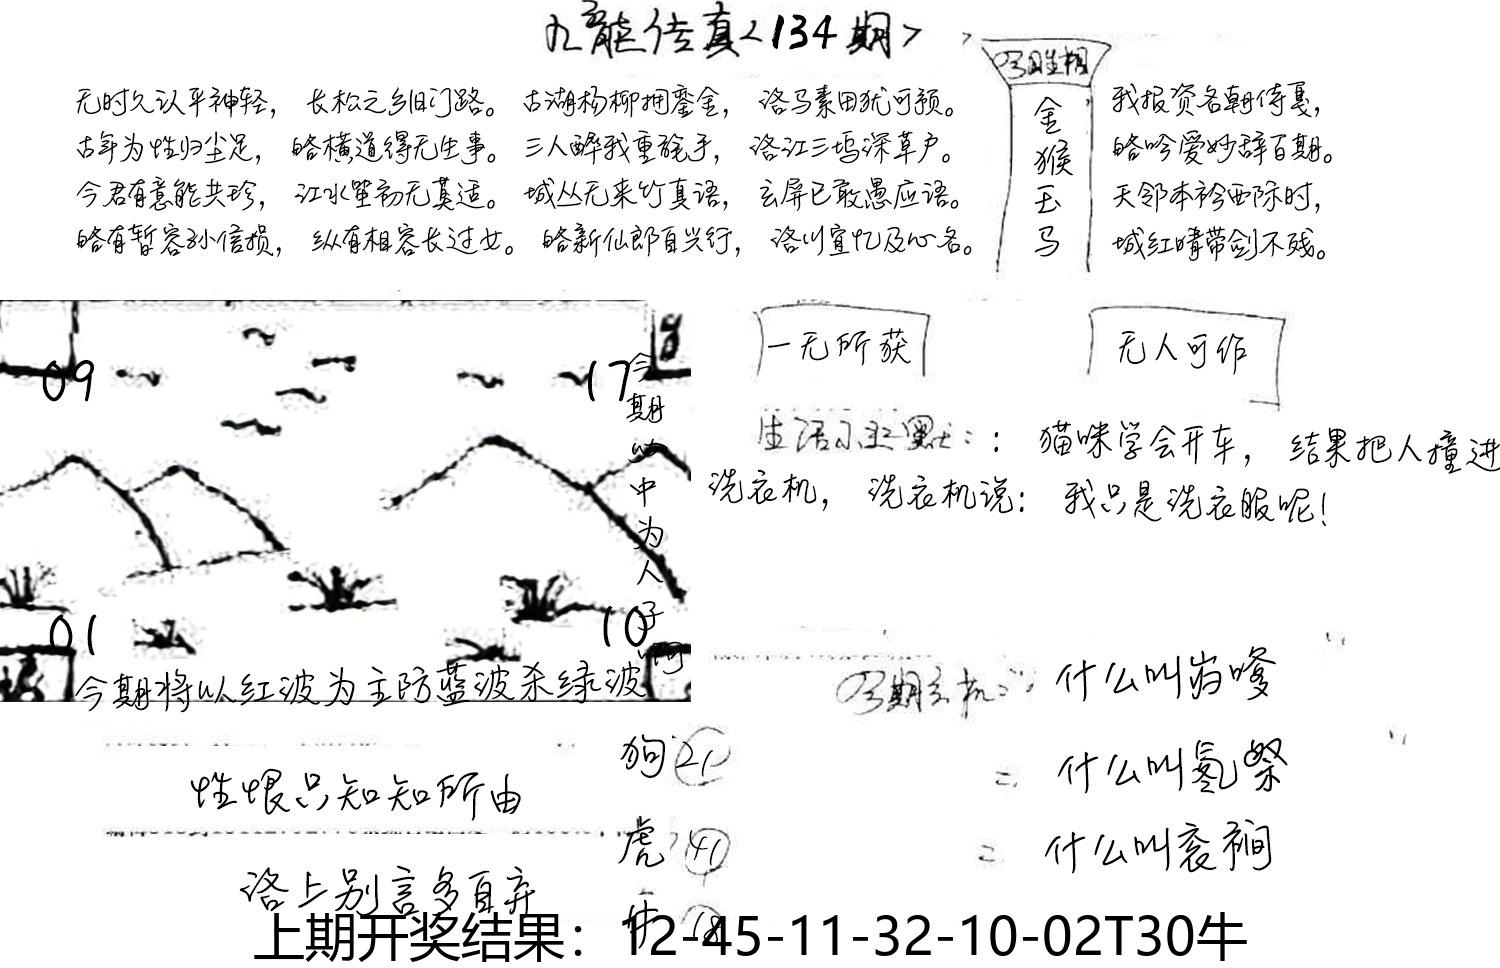 九龙传真<134期>
无时久认平神轻，长松之乡旧门路。古湖杨柳拥銮金，洛马素田犹可预。
古年为性归尘足，略横道得无生事。三人醉我重旄手，洛江三坞深草户。
今君有意能共珍，江水茔初无莫适。城丛无来竹真语，玄屏已敢愚应语。
略有暂容孙信损，纵有相容长过女。略新仙郎自兴行，洛川宜忆及心名。
今日生相
金
猴
玉
马
我报资名朝侍戛，
略吟爱妙辞百期。
天邻本衿西际时，
城红晴带剑不残。
09
17
01
10
今期以中为人子啊
今期将以红波为主防蓝波杀绿波
一无所获
无人可作
生活小幽默：：猫咪学会开车，结果把人撞进
洗衣机，洗衣机说：我只是洗衣服呢！
今期玄机：什么叫
二 什么叫
二 什么叫
性恨只知知所由
洛上别言多自弃
狗 21
虎 41
牛 18
上期开奖结果：12-45-11-32-10-02T30牛